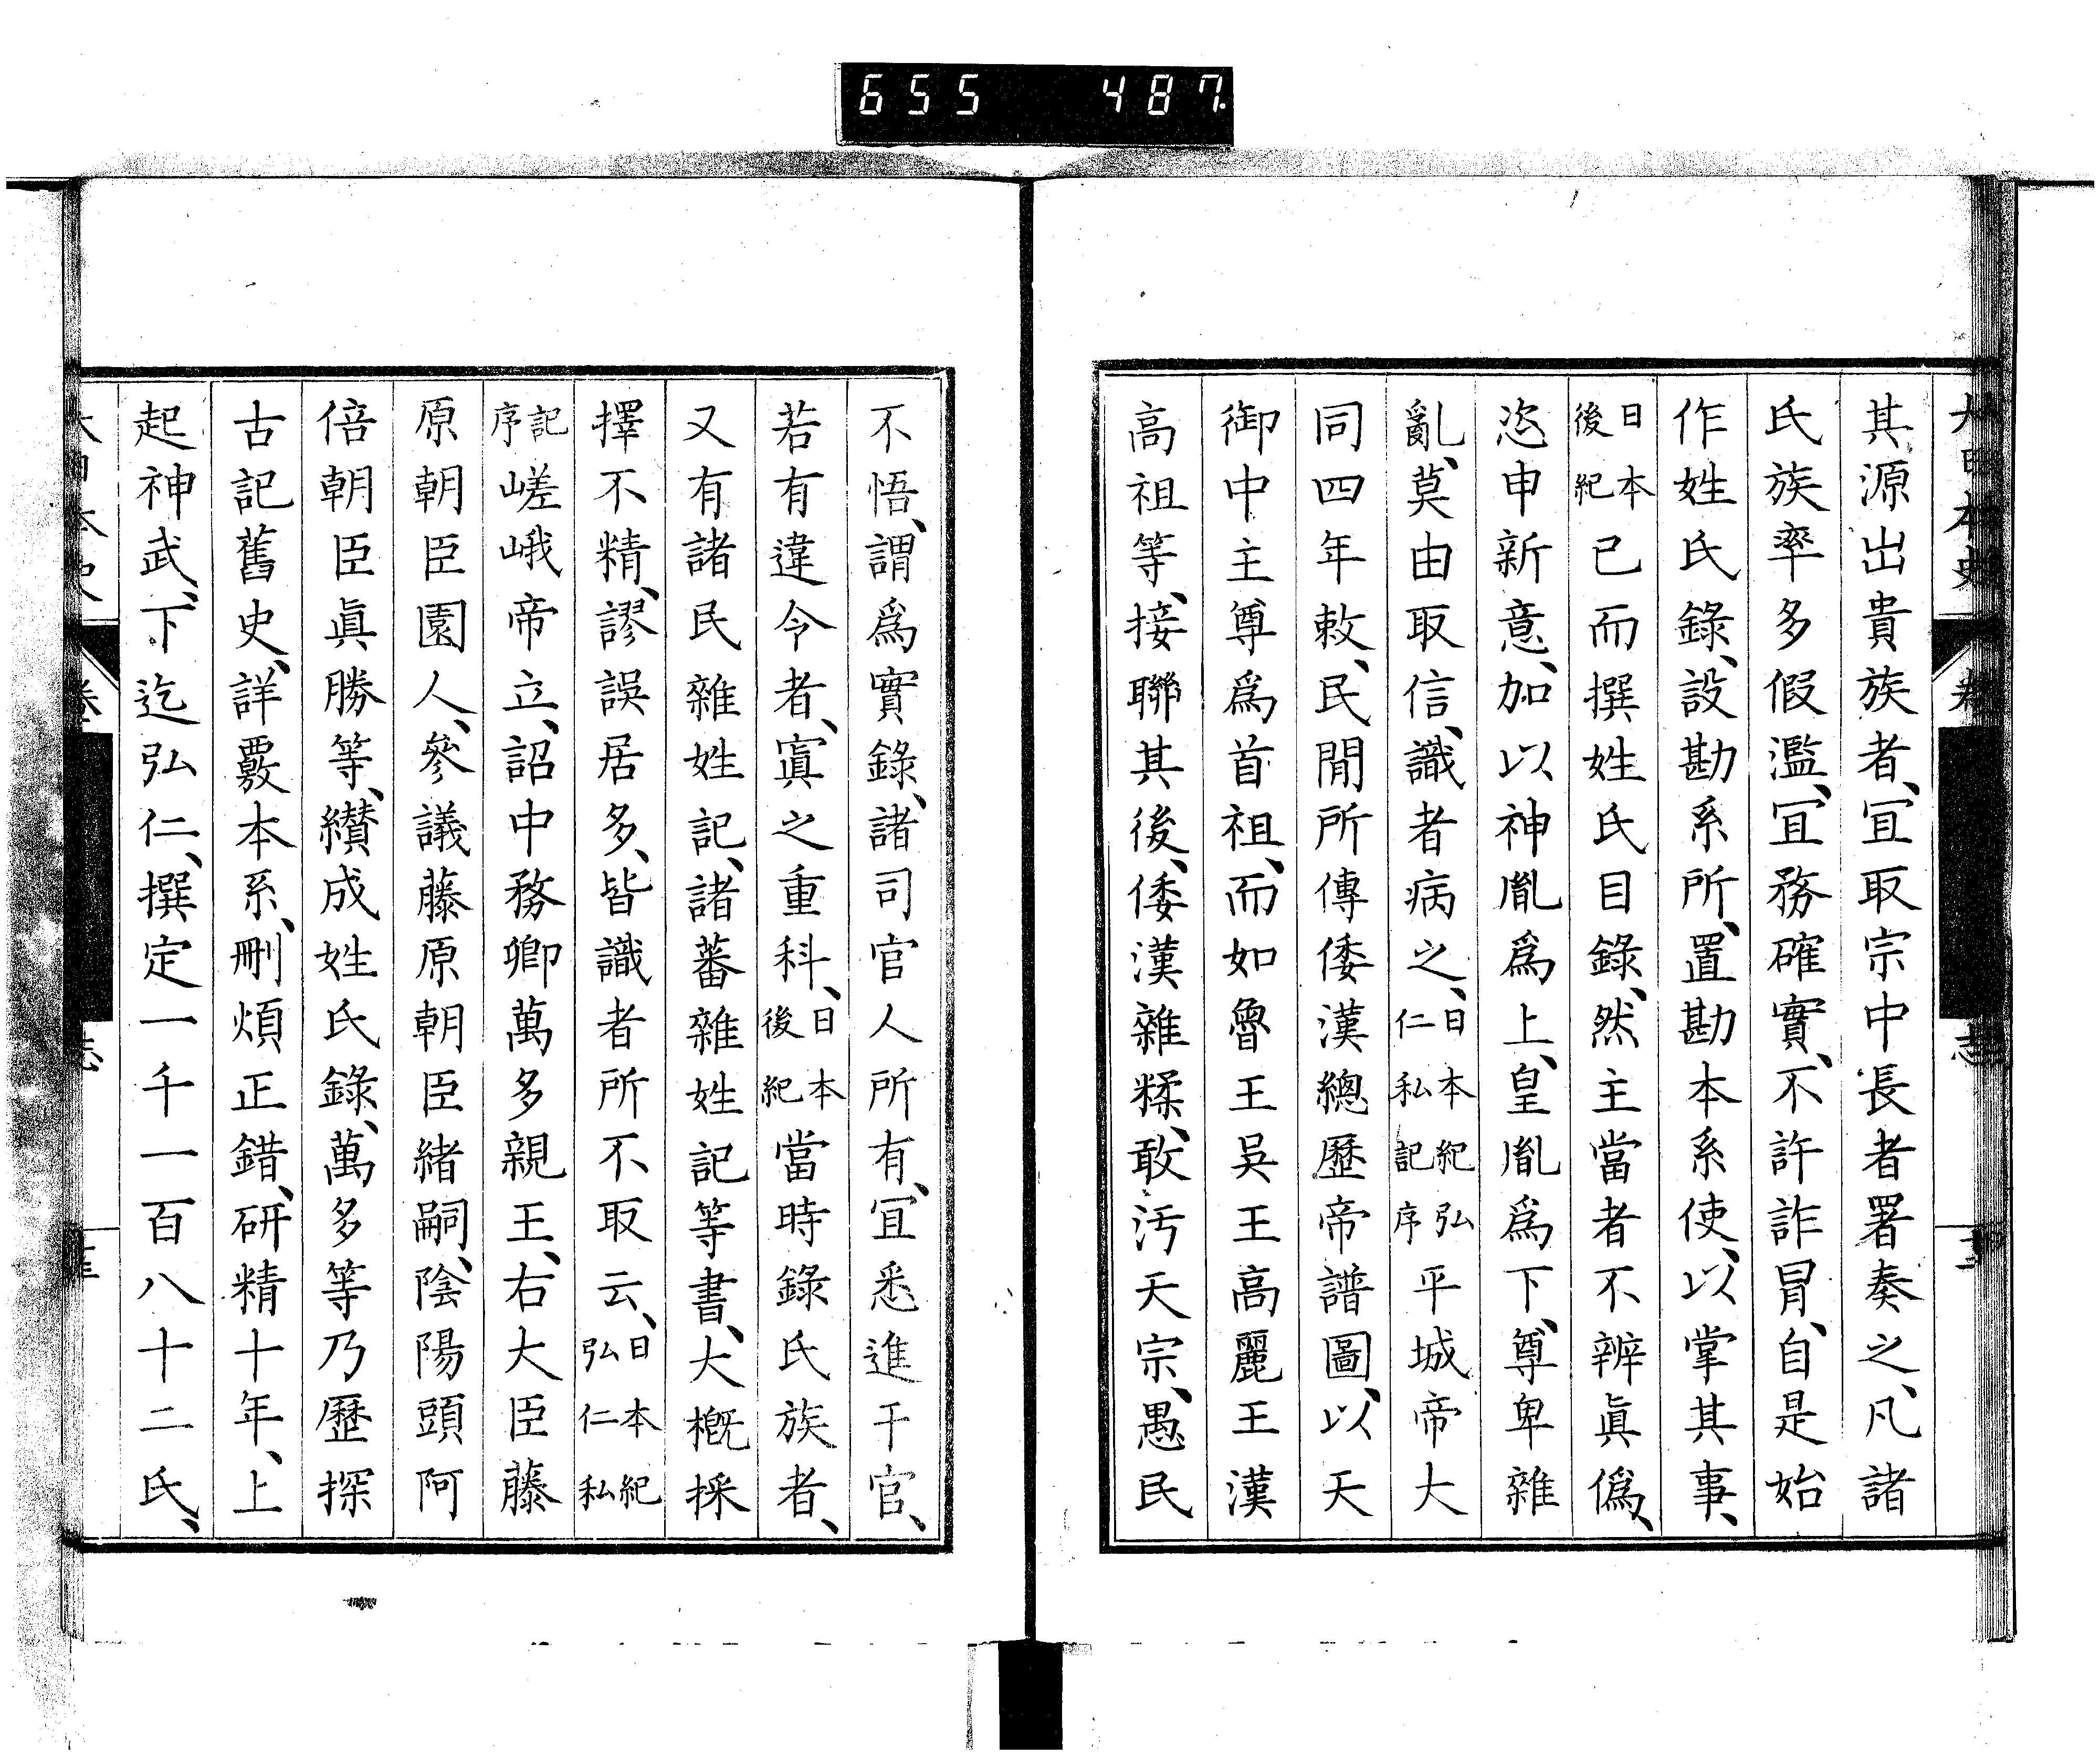 655 487
大日本史
志
其源出貴族者、冝取宗中長者署奏之、凡諸
氏族率多假濫、冝務確實、不許詐冒、自是始
作姓氏錄、設勘系所、置勘本系使、以掌其事、
日本後紀已而撰姓氏目錄、然主當者不辨眞僞、
恣申新意、加以神胤爲上、皇胤爲下、尊卑雜
亂、莫由取信、識者病之、日本紀弘仁私記序平城帝大
同四年敕、民閒所傳倭漢總歷帝譜圖、以天
御中主尊爲首祖、而如魯王吳王高麗王漢
高祖等、接聯其後、倭漢雜糅、敢汚天宗、愚民
不悟、謂爲實錄、諸司官人所有、冝悉進干官、
若有違令者、寘之重科、日本後紀當時錄氏族者、
又有諸民雜姓記、諸蕃雜姓記等書、大槪採
擇不精、謬誤居多、皆識者所不取云、日本紀弘仁私
記序嵯峨帝立、詔中務卿萬多親王、右大臣藤
原朝臣園人、參議藤原朝臣緒嗣、陰陽頭阿
倍朝臣眞勝等、纘成姓氏錄、萬多等乃歷探
古記舊史、詳覈本系、刪煩正錯、硏精十年、上
起神武、下迄弘仁、撰定一千一百八十二氏、